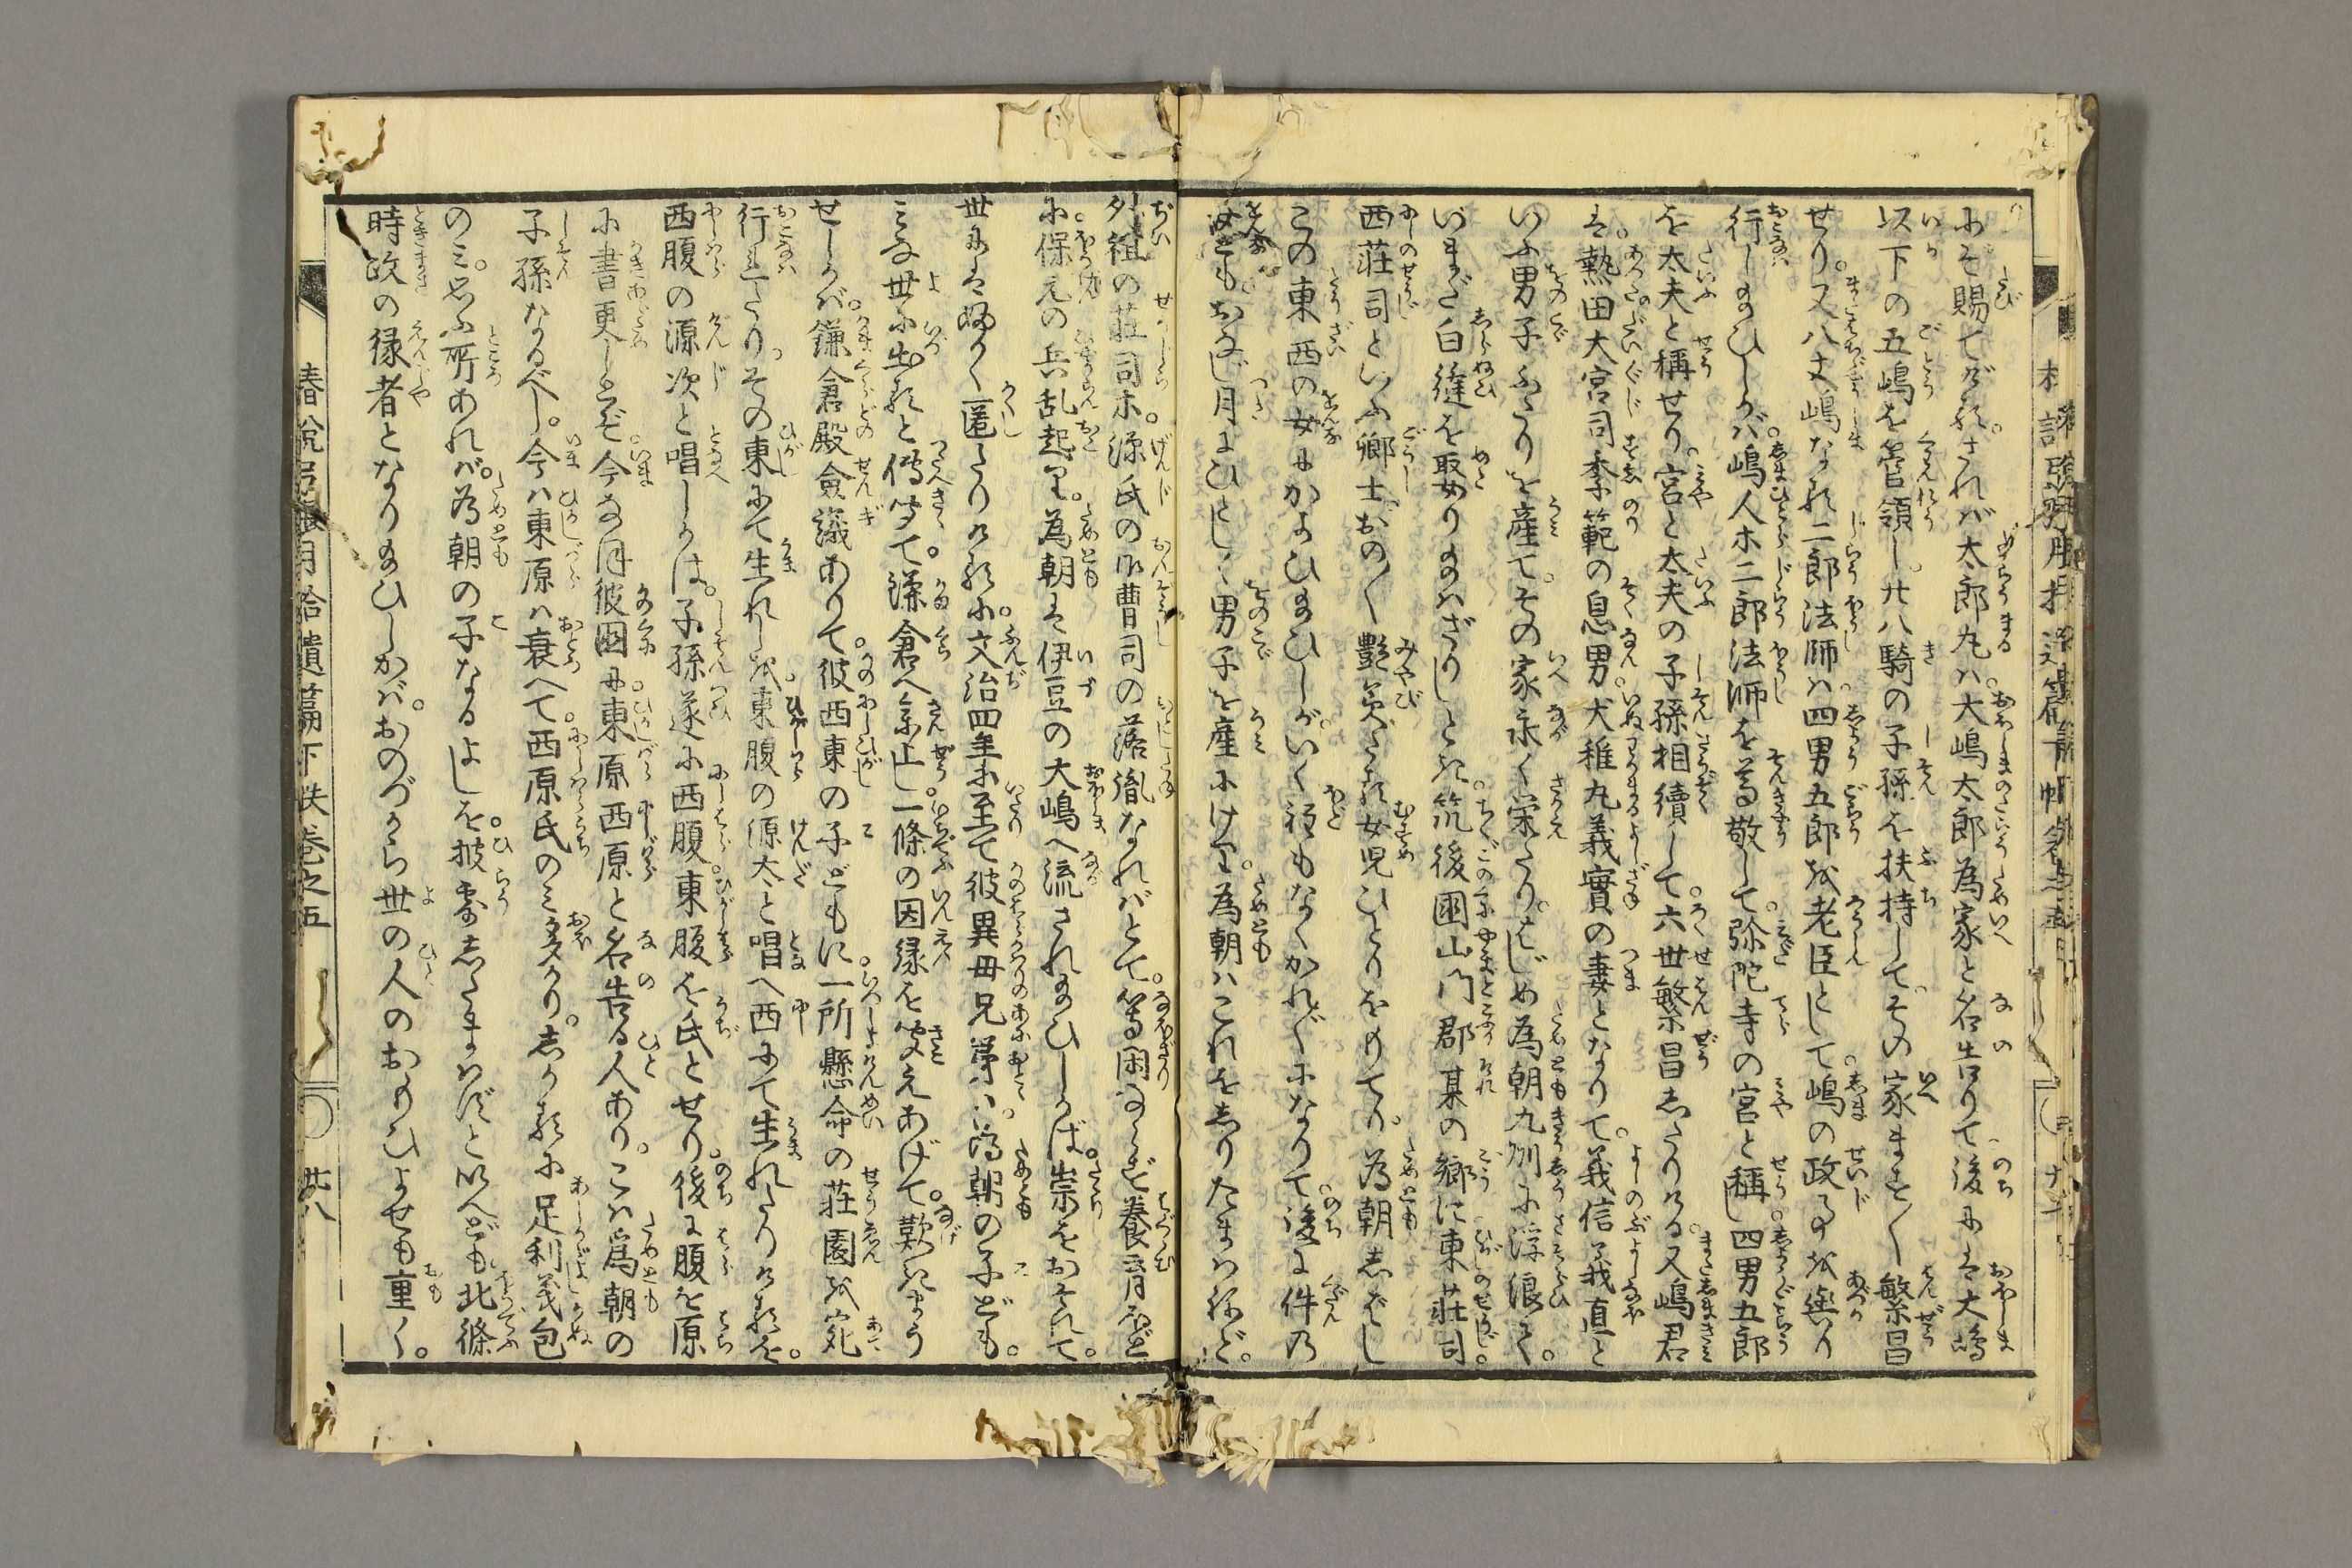 にぞ賜てげる。されば太郎丸は。大嶋太郎為家と名告りて。後には大嶋
以下の五嶋を管領し。廿八騎の子孫を扶持して。その家ますく繁昌
せり。又八丈嶋なる二郎法師は。四男五郎を老臣として。嶋の政事を與り
行しめひしかば。嶋人ホ二郎法師を尊敬して。弥陀寺の宮と稱し。四男五郎
を太夫と稱せり。宮と太夫の子孫相續して。六世繁昌したりける。又嶋君
は。熱田大宮司季範の息男。犬稚丸義實の妻となりて。義信義直と
いふ男子ふたりを産て。その家永く栄たり。はじめ為朝九州に浮浪て。
いまだ白縫を娶りまはざりしとき。筑後國山門郡某の郷に。東莊司。
西莊司といふ郷士。おのく艶美たる女児ひとりをもてり。為朝しばし
この東西の女にかよひ給ひしが。いく程もなくかれがれになりて。後に件の
女どもおなじ月にひとしく男子を産にけり。為朝はこれをしりたまはねど。
外祖の莊司ホ。源氏の御曹司の落胤なればとて。等閑ならず養育ほど
に。保元の兵乱起り。為朝は伊豆の大嶋へ流され給ひしかば。祟をおそれて。
世には深く匿したりけるに。文治四年に至て彼異母兄弟は。為朝の子ども。
みな世に出ると傳聞て。鎌倉へ参上し。一條の因縁を聞えあげて。歎きまう
せしかば。鎌倉殿僉議ありて。彼西東の子どもに。一所懸命の莊園を宛
行れたり。その東にて生れしを。東腹の源太と唱へ。西にて生れたりけるを。
西腹の源次と唱しかば。子孫遂に西腹。東腹を氏とせり。後に腹を原
に書更しとぞ。今なほ彼國に。東原西原と名告る人あり。こは為朝の
子孫なるべし。今は東原は衰へて。西原氏のみ多かり。しかるに足利義包
のみ。思ふ所あれば。為朝の子なるよしを。披露したまはずといへども。北條
時政の縁者となり給ひしかば。おのづから世の人のおもひよせも重く。
椿説弓張月拾遺篇下帙卷之五
廿八